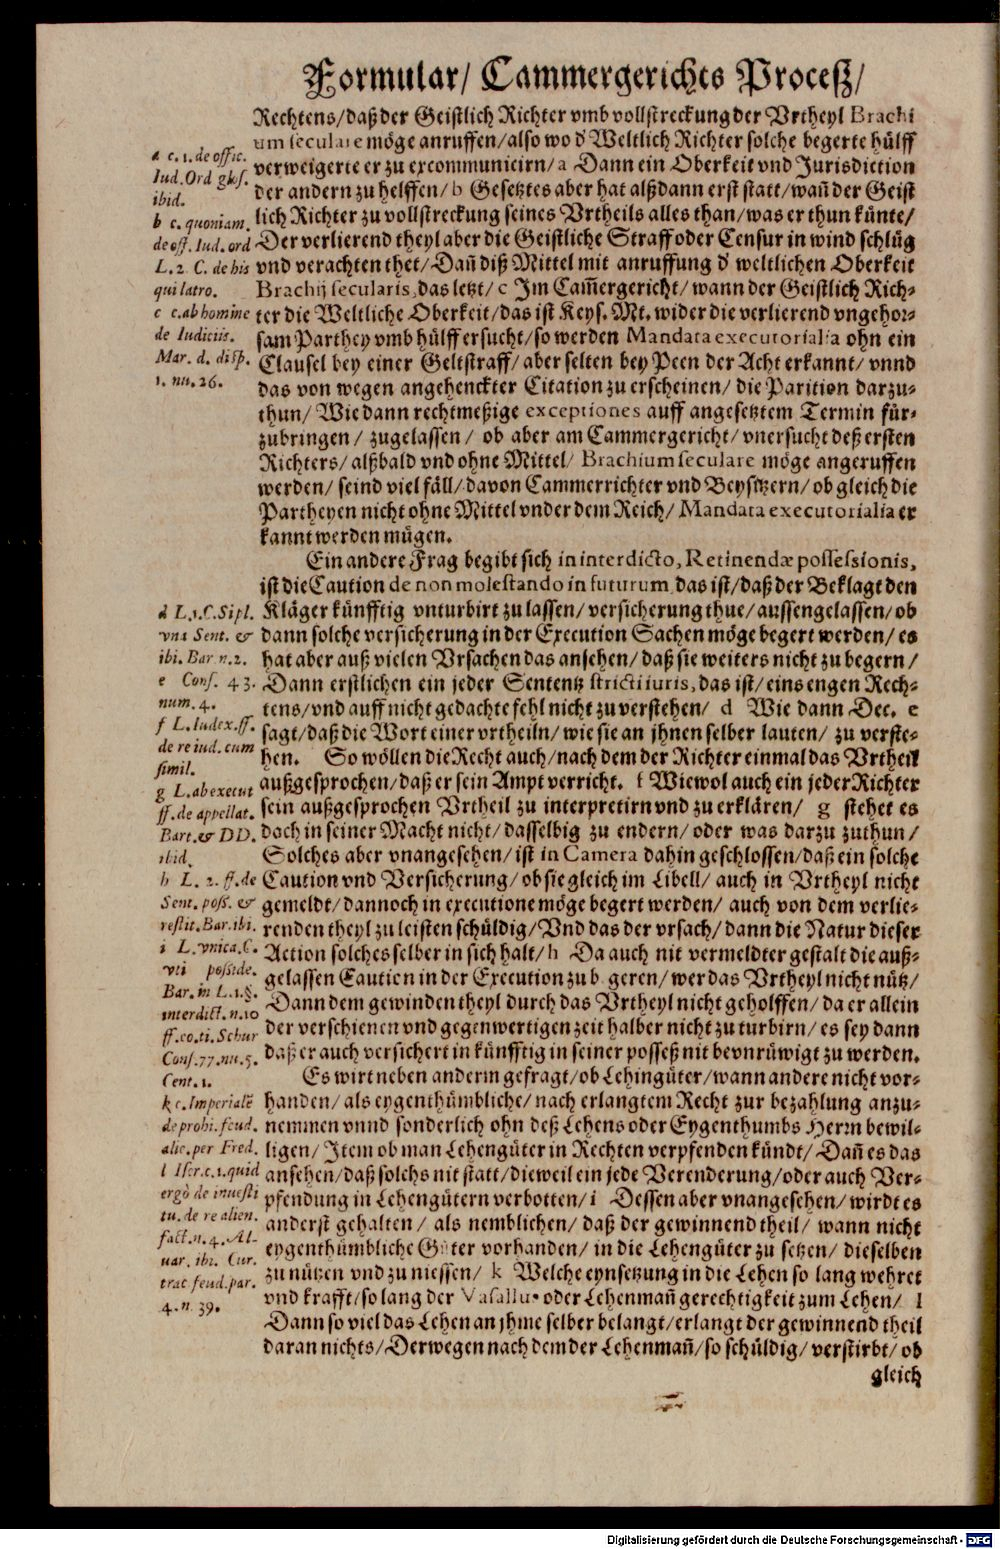 Formular/ Cammergerichts Proceß/
Rechtens/daß der Geistlich Richter vmb vollstreckung der Vrtheyl Brachi
um seculare möge anruffen/also wo d' Weltlich Richter solche begerte hülff
verweigerte er zu excommunicirn/a Dann ein Oberkeit vnd Jurisdiction
der andern zu helffen/b Gesetztes aber hat alßdann erst statt/wañ der Geist
lich Richter zu vollstreckung seines Vrtheils alles than/was er thun künte/
Der verlierend theyl aber die Geistliche Straff oder Censur in wind schlüg
vnd verachten thet/Dañ diß Mittel mit anruffung d' weltlichen Oberkeit
Brachij secularis, das letzt/c Im Cam̃ergericht/wann der Geistlich Rich-
ter die Weltliche Oberkeit/das ist Keys. Mt. wider die verlierend vngehor-
sam Parthey vmb hülff ersucht/so werden Mandata executorialia ohn ein
Clausel bey einer Geltstraff/aber selten bey Peen der Acht erkannt/vnnd
das von wegen angehenckter Citation zu erscheinen/die Parition darzu-
thun/Wie dann rechtmeßige exceptiones auff angesetztem Termin für-
zubringen/zugelassen/ob aber am Cammergericht/vnersucht deß ersten
Richters/alßbald vnd ohne Mittel/Brachium seculare möge angeruffen
werden/seind viel fäll/davon Cammerrichter vnd Beysitzern/ob gleich die
Partheyen nicht ohne Mittel vnder dem Reich/Mandata executorialia er
kannt werden mügen.
Ein andere Frag begibt sich in interdicto, Retinendæ possessionis,
ist die Caution de non molestando in futurum das ist/daß der Beklagt den
Kläger künfftig vnturbirt zu lassen/versicherung thue/aussengelassen/ob
dann solche versicherung in der Execution Sachen möge begert werden/es
hat aber auß vielen Vrsachen das ansehen/daß sie weiters nicht zu begern/
Dann erstlichen ein jeder Sententz stricti iuris, das ist/eins engen Rech-
tens/vnd auff nicht gedachte fehl nicht zu verstehen/ d Wie dann Dec. e
sagt/daß die Wort einer vrtheiln/wie sie an jhnen selber lauten/zu verste-
hen. So wöllen die Recht auch/nach dem der Richter einmal das Vrtheil
außgesprochen/daß er sein Ampt verricht. f Wiewol auch ein jeder Richter
sein außgesprochen Vrtheil zu interpretirn vnd zu erklären/ g stehet es
doch in seiner Macht nicht/dasselbig zu endern/oder was darzu zuthun/
Solches aber vnangesehen/ist in Camera dahin geschlossen/daß ein solche
Caution vnd Versicherung/ob sie gleich im Libell/auch in Vrtheyl nicht
gemeldt/dannoch in executione möge begert werden/auch von dem verlie-
renden theyl zu leisten schüldig/Vnd das der vrsach/dann die Natur dieser
Action solches selber in sich halt/h Da auch nit vermeldter gestalt die auß-
gelassen Caution in der Execution zu b geren/wer das Vrtheyl nicht nütz/
Dann dem gewinden theyl durch das Vrtheyl nicht geholffen/da er allein
der verschienen vnd gegenwertigen zeit halber nicht zu turbirn/es sey dann
daß er auch versichert in künfftig in seiner posseß nit bevnrüwigt zu werden.
Es wirt neben anderm gefragt/ob Lehingüter/wann andere nicht vor-
handen/als eygenthümbliche/nach erlangtem Recht zur bezahlung anzu-
nemmen vnnd sonderlich ohn deß Lehens oder Eygenthumbs Herrn bewil-
ligen/Item ob man Lehengüter in Rechten verpfenden kündt/Dañ es das
ansehen/daß solchs nit statt/dieweil ein jede Verenderung/oder auch Ver-
pfendung in Lehengütern verbotten/i Dessen aber vnangesehen/wirdt es
anderst gehalten/als nemblichen/daß der gewinnend theil/wann nicht
eygenthümbliche Güter vorhanden/in die Lehengüter zu setzen/dieselben
zu nützen vnd zu niessen/ k Welche eynsetzung in die Lehen so lang wehret
vnd krafft/so lang der Vasallus oder Lehenmañ gerechtigkeit zum Lehen/ l
Dann so viel das Lehen an jhme selber belangt/erlangt der gewinnend theil
daran nichts/Derwegen nach dem der Lehenmañ/so schüldig/verstirbt/ob
gleich
a c. 1. de offic.
Iud. Ord glos.
ibid.
b c. quoniam.
de off. Iud. ord
L. 2 C. de his
qui latro.
c c. ab homine
de Iudiciis.
Mar. d. disp.
1. nu. 26.
d L. 1. C. Si pl.
vna Sent. &
ibi. Bar n. 2.
e Cons. 43.
num. 4.
f L. Iudex. ff.
de re iud. cum
simil.
g L. ab execut
ff. de appellat.
Bart. & DD.
ibid.
h L. 2. ff. de
Sent. poss. &
restit. Bar. ibi.
i L. vnica. C.
vti posside.
Bar. in L. 1. §.
interdict. n. 10
ff. eo. ti. Schur
Cons. 77. nu. 5.
Cent. 1.
k c. Imperialē
de prohi. feud.
alie. per Fred.
l Iser. c. 1. quid
ergò de inuesti
tu. de re alien.
fact. n. 4. Al-
uar. ibi. Cur.
trac feud. par.
4. n. 39.
Digitalisierung gefördert durch die Deutsche Forschungsgemeinschaft - DFG